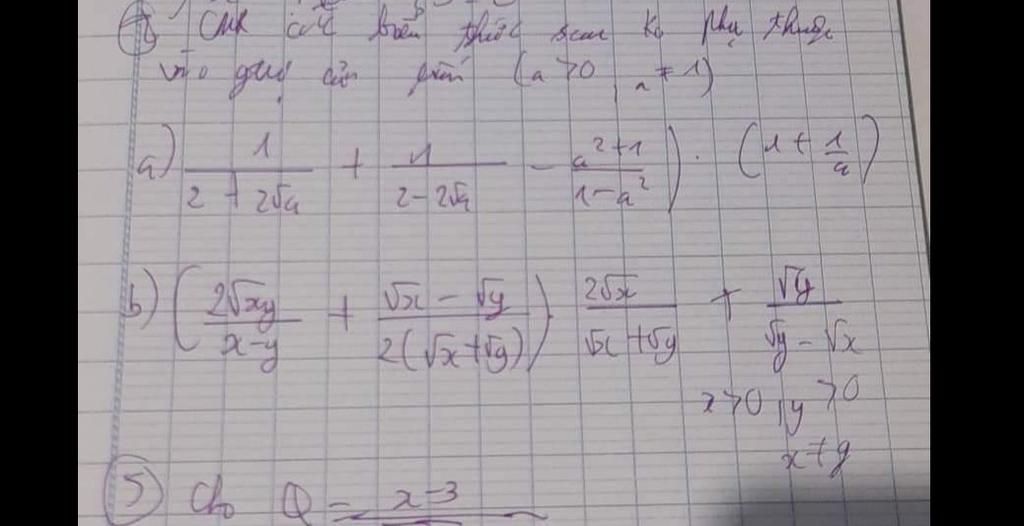 ④ CMR các biểu thức sau ko phụ thuộc
vào giá trị của biến (a > 0, a ≠ 1)
a) 1/(2 + 2√a) + 1/(2 - 2√a) - (a² + 1)/(1 - a²)) . (1 + 1/a)
b) (2√xy/(x - y) + (√x - √y)/(2(√x + √y))) 2√x/(√x + √y) + √y/(√y - √x)
x > 0, y > 0
x ≠ y
⑤ Cho Q = x - 3